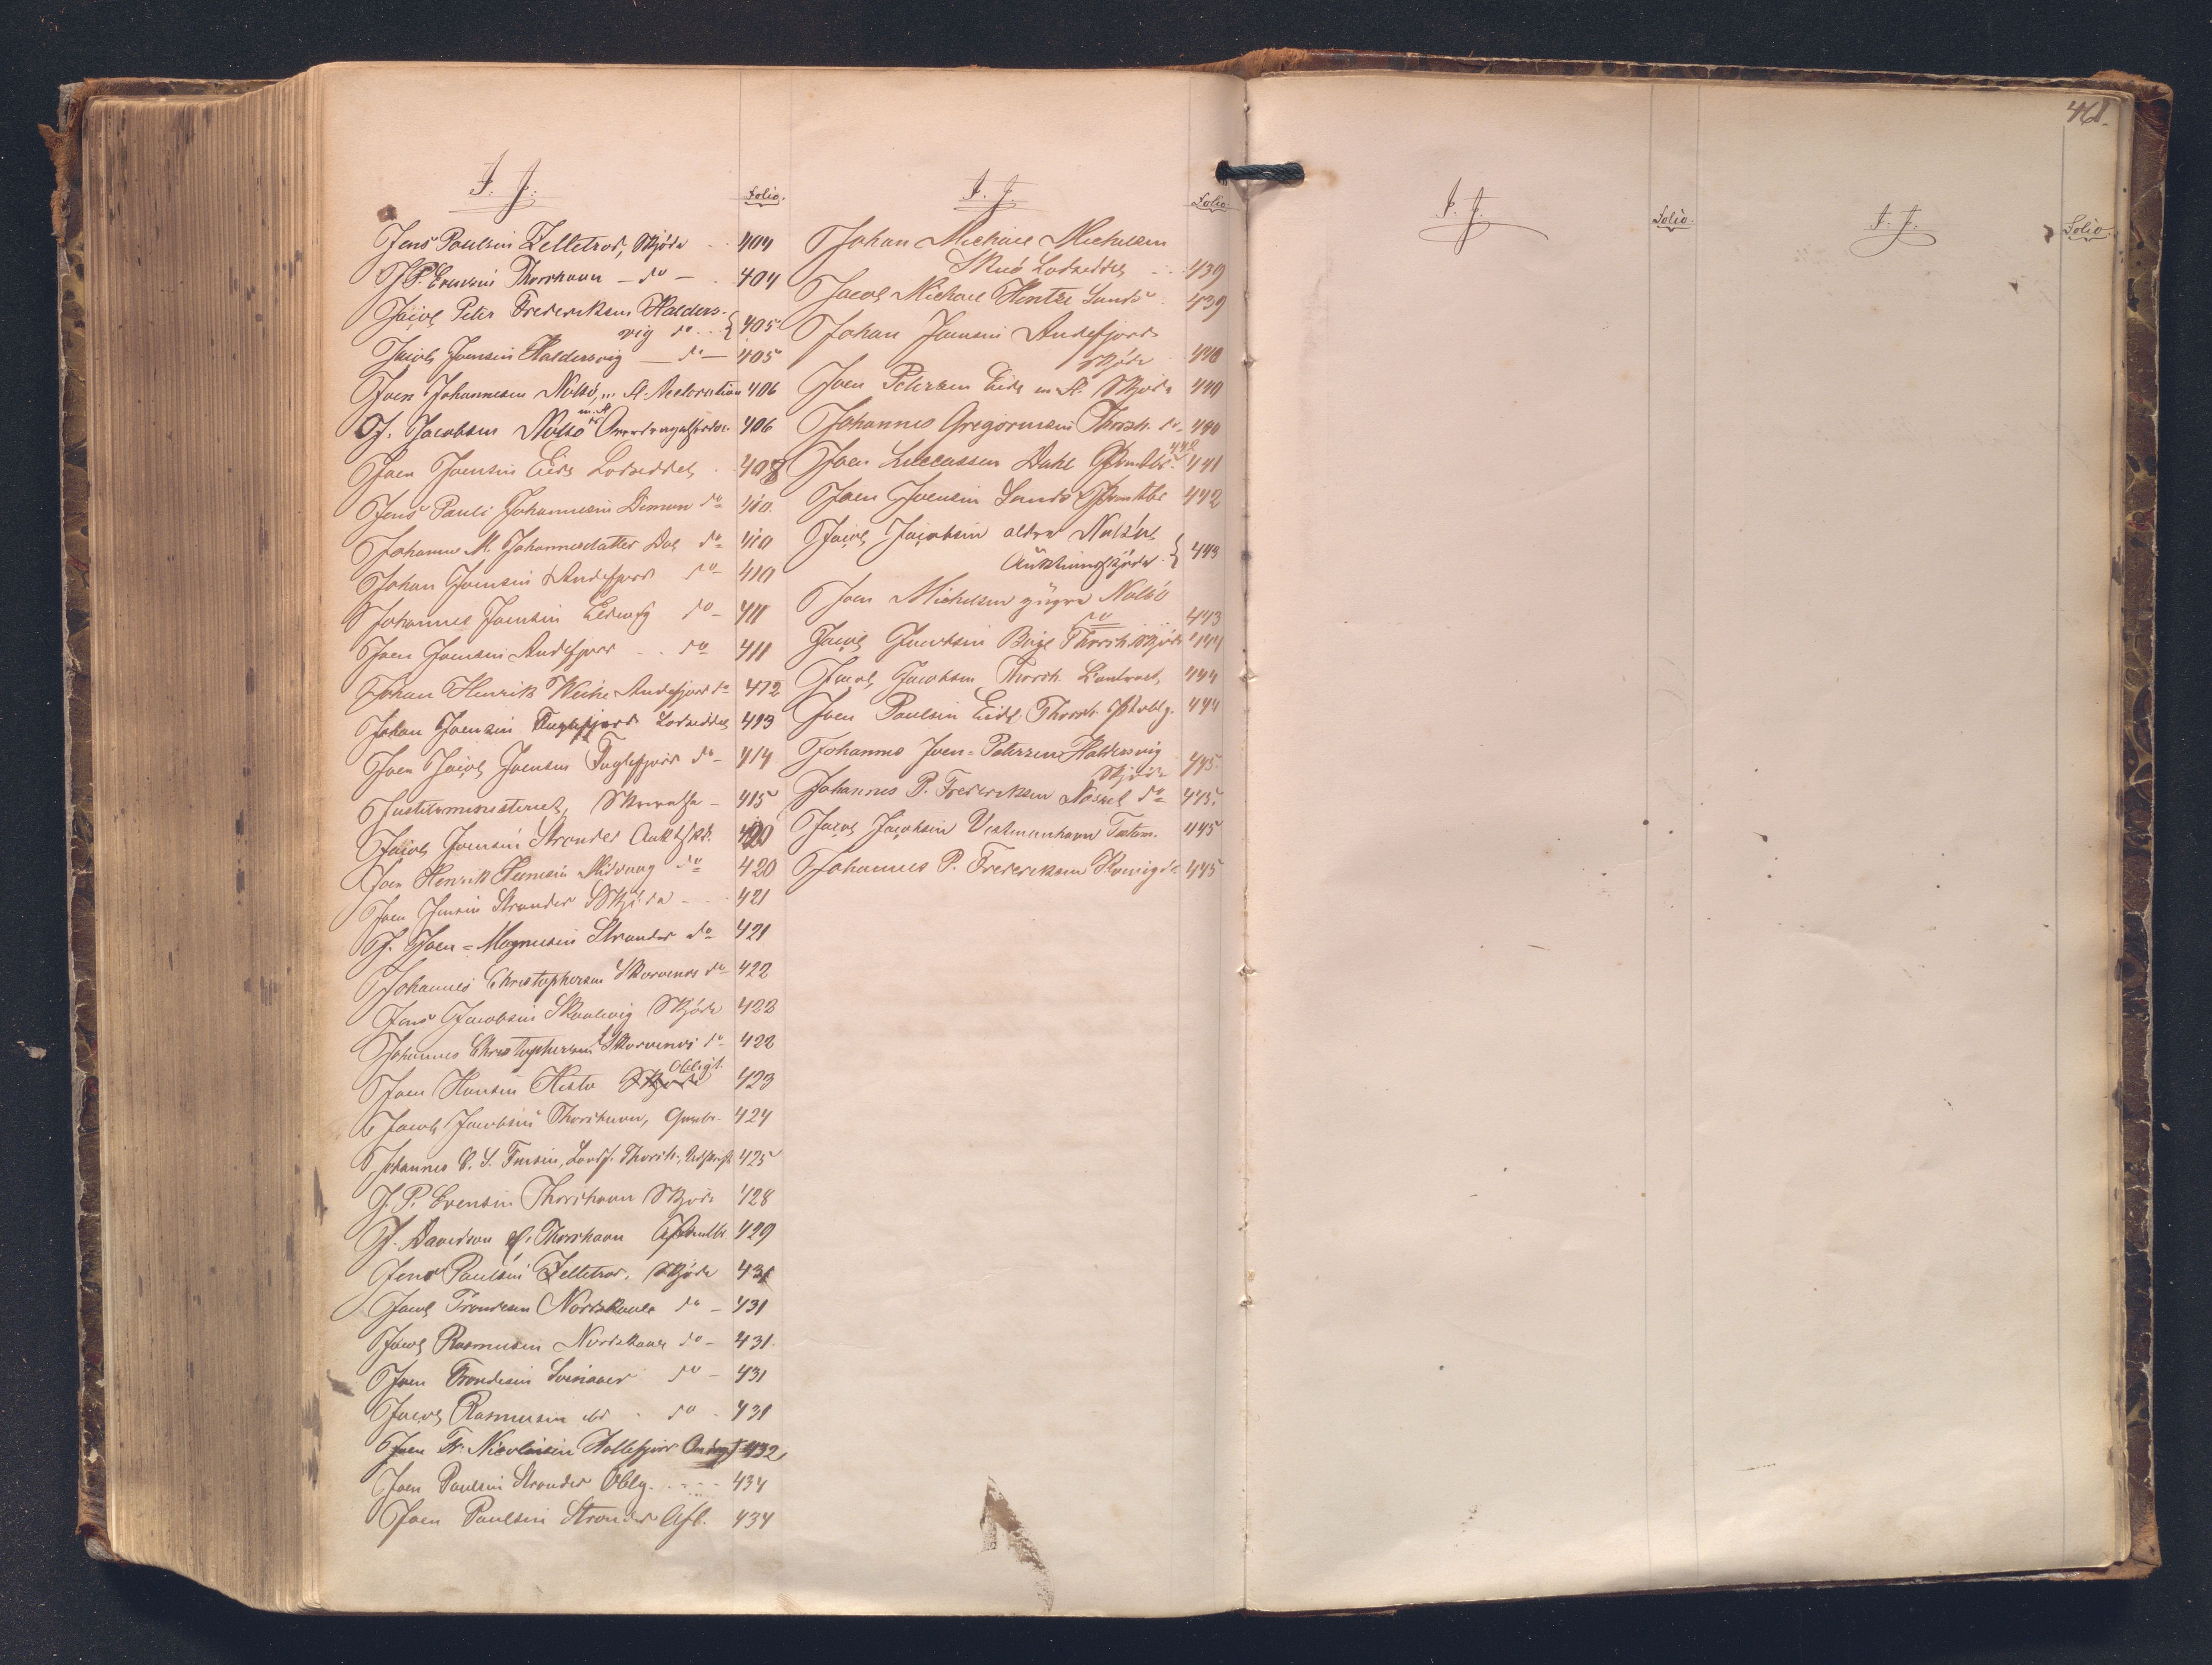 I. J.
Folio.
Jens Paulsen Zelletrød, Skjøde 404
J. P. Evensen Thorshavn – do – 404
Jacob Peter Frederiksen Halders-
vig do 405
Jacob Joensen Haldersvig – do – 405
Joen Johannesen Nolsø, m. fl. 406
J. Jacobsen Nolsø m. fl. 406
Joen Joensen Eide Lodseddel 408
Jens Pauli Johannesen Dimon do 410
Johanne M. Johannesdatter Dal do 410
Johan Joensen Andefjord do 410
Johannes Joensen do 411
Joen Joensen Andefjord do 411
Johan Henrik Weihe Andefjord do 412
Johan Joensen Fuglefjord Lodseddel 413
Joen Jacob Joensen Fuglefjord do 414
Justitsministeriet, 415
Jacob Joensen Strender 420
Joen Henrik Midvaag do 420
Joen Jensen Strender Skjøde 421
J. Joen=Magnusen Strender do 421
Johannes Christophersen Skorvenes do 422
Jens Jacobsen Skaalevig Skjøde 422
Johannes Christophersen Skorvenes do 422
Obligt.
Joen Hansen Hestø Skjøde 423
Jacob Jacobsen Thorshavn, 424
Johannes Thorsh. 425
J. P. Evensen Thorshavn Skjøde 428
J. Davidsen Thorshavn 429
Jens Paulsen Zelletrød. Skjøde 431
Jacob Trondesen Nordskaale do – 431
Jacob Rasmusen Nordskaale do – 431.
Joen Trondesen Svinaaer do – 431
Jacob Rasmusen do 431
Joen Fr. Nicolaisen Kollefjord 432
Joen Paulsen Strender Oblig. 434
Joen Paulsen Strender Afl. 434
I. J.
Folio
Johan Michael Michelsen
Skuø Lodseddel 439
Jacob Michael Hentze Sandø 439
Johan Joensen Andefjord
Skjøde 440
Joen Petersen Eide m. fl. Skjøde 440
Johannes Gregoriusen Thorsh. do 440
Joen Luccassen Dahl 442 441
Joen Joensen Sandø 442
Jacob Jacobsen ældre Nolsø
Auktionsskjøde 443
Joen Michelsen yngre Nolsø
do 443
Jacob Jacobsen Thorsh. Skjøde 444
Jacob Jacobsen Thorsh. 444
Joen Paulsen Eide, Thorsh. 444
Johannes Joen=Petersen Haldersvig
Skjøde 445.
Johannes P. Frederiksen do 445.
Jacob Jacobsen Vestmanhavn Testam. 445
Johannes P. Frederiksen 445
461.
I. J.
Folio.
I. J.
Folio.